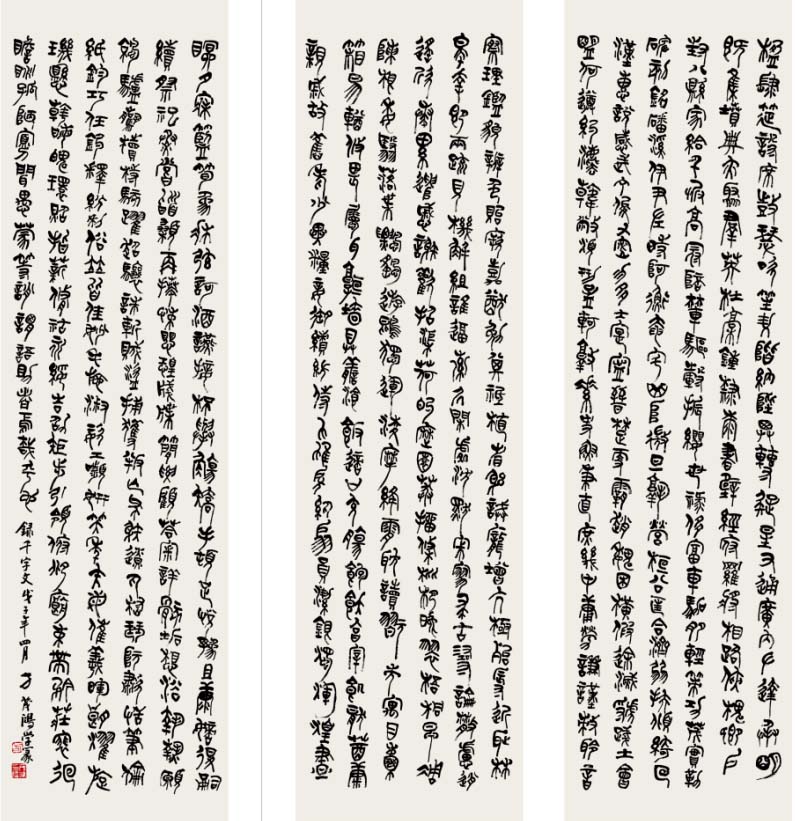 楹肆筵設席鼓瑟吹笙升階納陛弁轉疑星右通廣內左達承明
既集墳典亦聚群英杜稿鍾隸漆書壁經府羅將相路俠槐卿戶
封八縣家給千兵高冠陪輦驅轂振纓世祿侈富車駕肥輕策功茂實勒
碑刻銘磻溪伊尹佐時阿衡奄宅曲阜微旦孰營桓公匡合濟弱扶傾綺回
漢惠說感武丁俊乂密勿多士寔寧晉楚更霸趙魏困橫假途滅虢踐土會
盟何遵約法韓弊煩刑孟軻敦素史魚秉直庶幾中庸勞謙謹敕聆音
察理鑑貌辨色貽厥嘉猷勉其祗植省躬譏誡寵增抗極殆辱近恥林
皋幸即兩疏見機解組誰逼索居閑處沉默寂寥求古尋論散慮逍
遙欣奏累遣慼謝歡招渠荷的歷園莽抽條枇杷晚翠梧桐早凋
陳根委翳落葉飄颻遊鵾獨運凌摩絳霄耽讀翫市寓目囊
箱易輶攸畏屬耳垣牆具膳飡飯適口充腸飽飫烹宰飢厭糟糠
親戚故舊老少異糧妾御績紡侍巾帷房紈扇圓潔銀燭煒煌晝
眠夕寐藍筍象床弦歌酒讌接杯舉觴矯手頓足悅豫且康嫡後嗣
續祭祀烝嘗稽顙再拜悚懼恐惶牋牒簡要顧答審詳骸垢想浴執熱願
涼驢騾犢特駭躍超驤誅斬賊盜捕獲叛亡布射遼丸嵇琴阮嘯恬筆倫
紙鈞巧任釣釋紛利俗並皆佳妙毛施淑姿工顰妍笑年矢每催羲暉朗曜旋
璣懸斡晦魄環照指薪修祜永綏吉劭矩步引領俯仰廊廟束帶矜莊徘徊
瞻眺孤陋寡聞愚蒙等誚謂語助者焉哉乎也 錄千字文戊子年四月